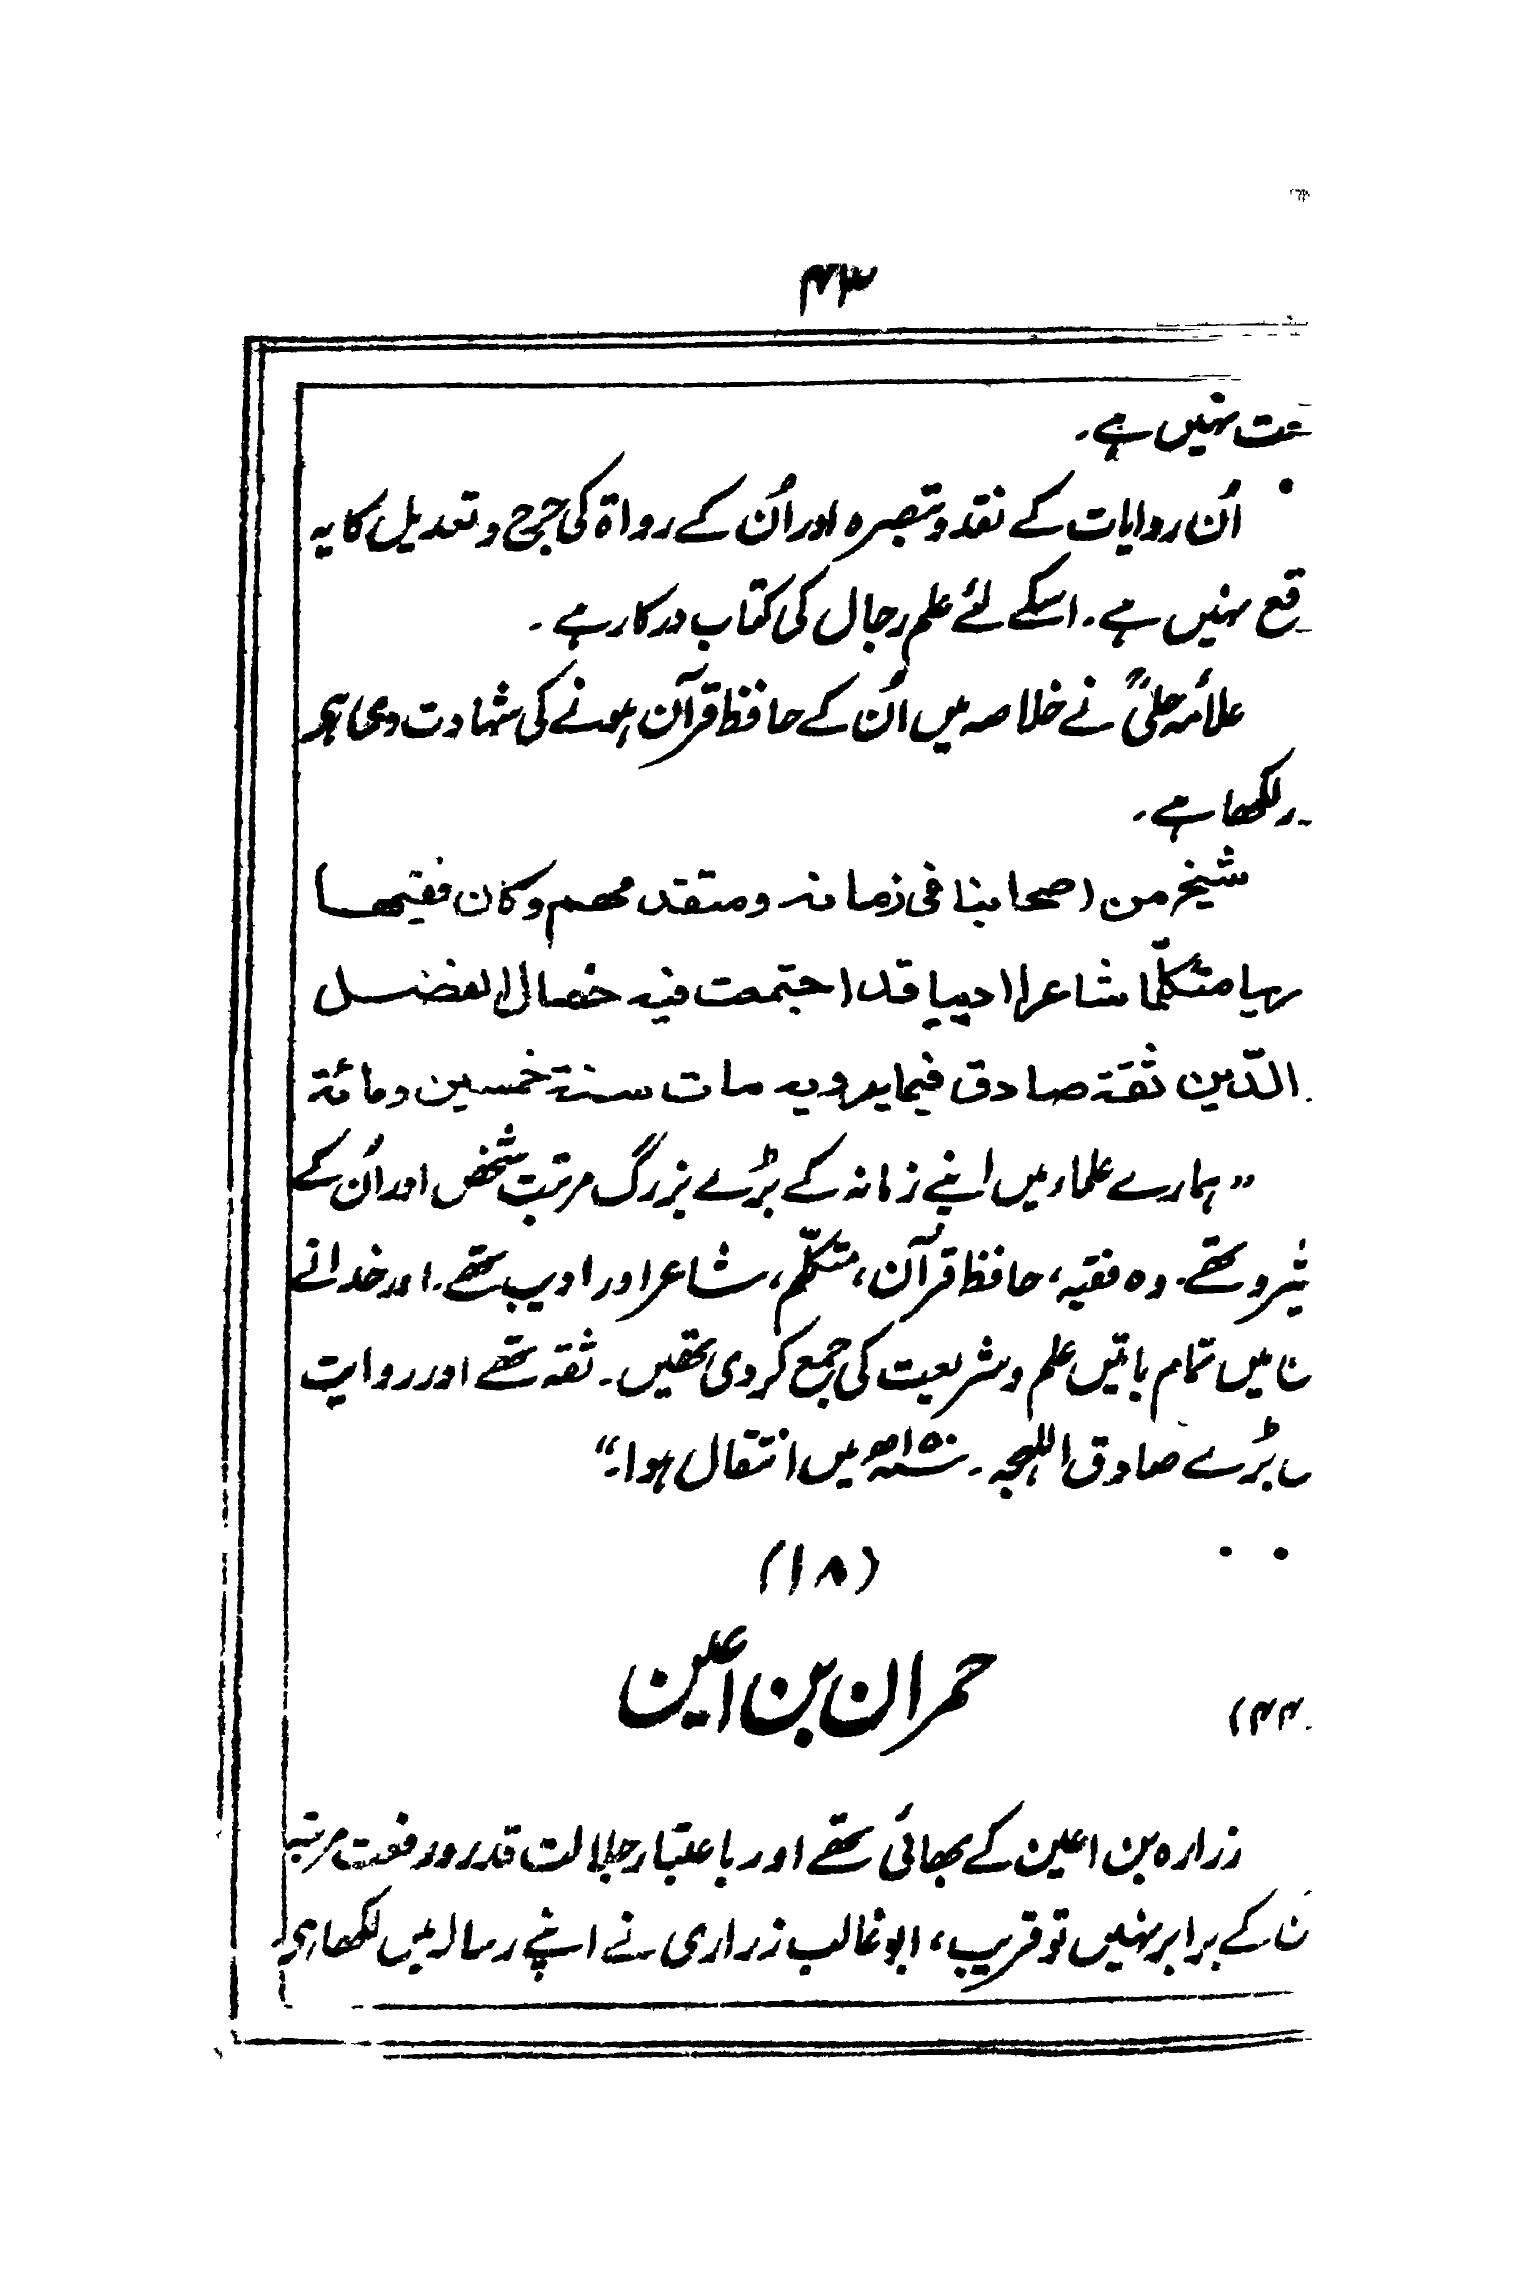 ۴۳
عت نہیں ہے۔
اُن روایات کے نقد و تبصرہ اور اُن کے رواۃ کی جرح و تعدیل کا یہ
قع نہیں ہے۔ اسکے لئے علم رجال کی کتاب درکار ہے۔
علامہ حلیؒ نے خلاصہ میں اُن کے حافظ قرآن ہونے کی شہادت دی ہی
ر لکھا ہے۔
شیخ من اصحابنا فی زمانہ و متقدمھم و کان فقیھا
ریا متکلّما شاعرا ادیبا قد اجتمعت فیہ خصال الفضل
الدّین ثقۃ صادق فیما یرویہ مات سنۃ خمسین و مائۃ
”ہمارے علماء میں اپنے زمانہ کے بڑے بزرگ مرتبت شخص اور اُن کے
شرو تھے۔ وہ فقیہ، حافظ قرآن، متکلّم، شاعر اور ادیب تھے۔ اور خدا نے
ن میں تمام باتیں علم و شریعت کی جمع کر دی تھیں۔ ثقہ تھے اور روایت
ں بڑے صادق اللہجہ۔ سنہ ۱۵۰ھ میں انتقال ہوا۔“
(۱۸)
حمران بن اعین
۴۴)
زرارہ بن اعین کے بھائی تھے اور باعتبار جلالت قدر و رفعت مرتبہ
ن کے برابر نہیں تو قریب، ابو غالب زراری نے اپنے رسالہ میں لکھا ہی